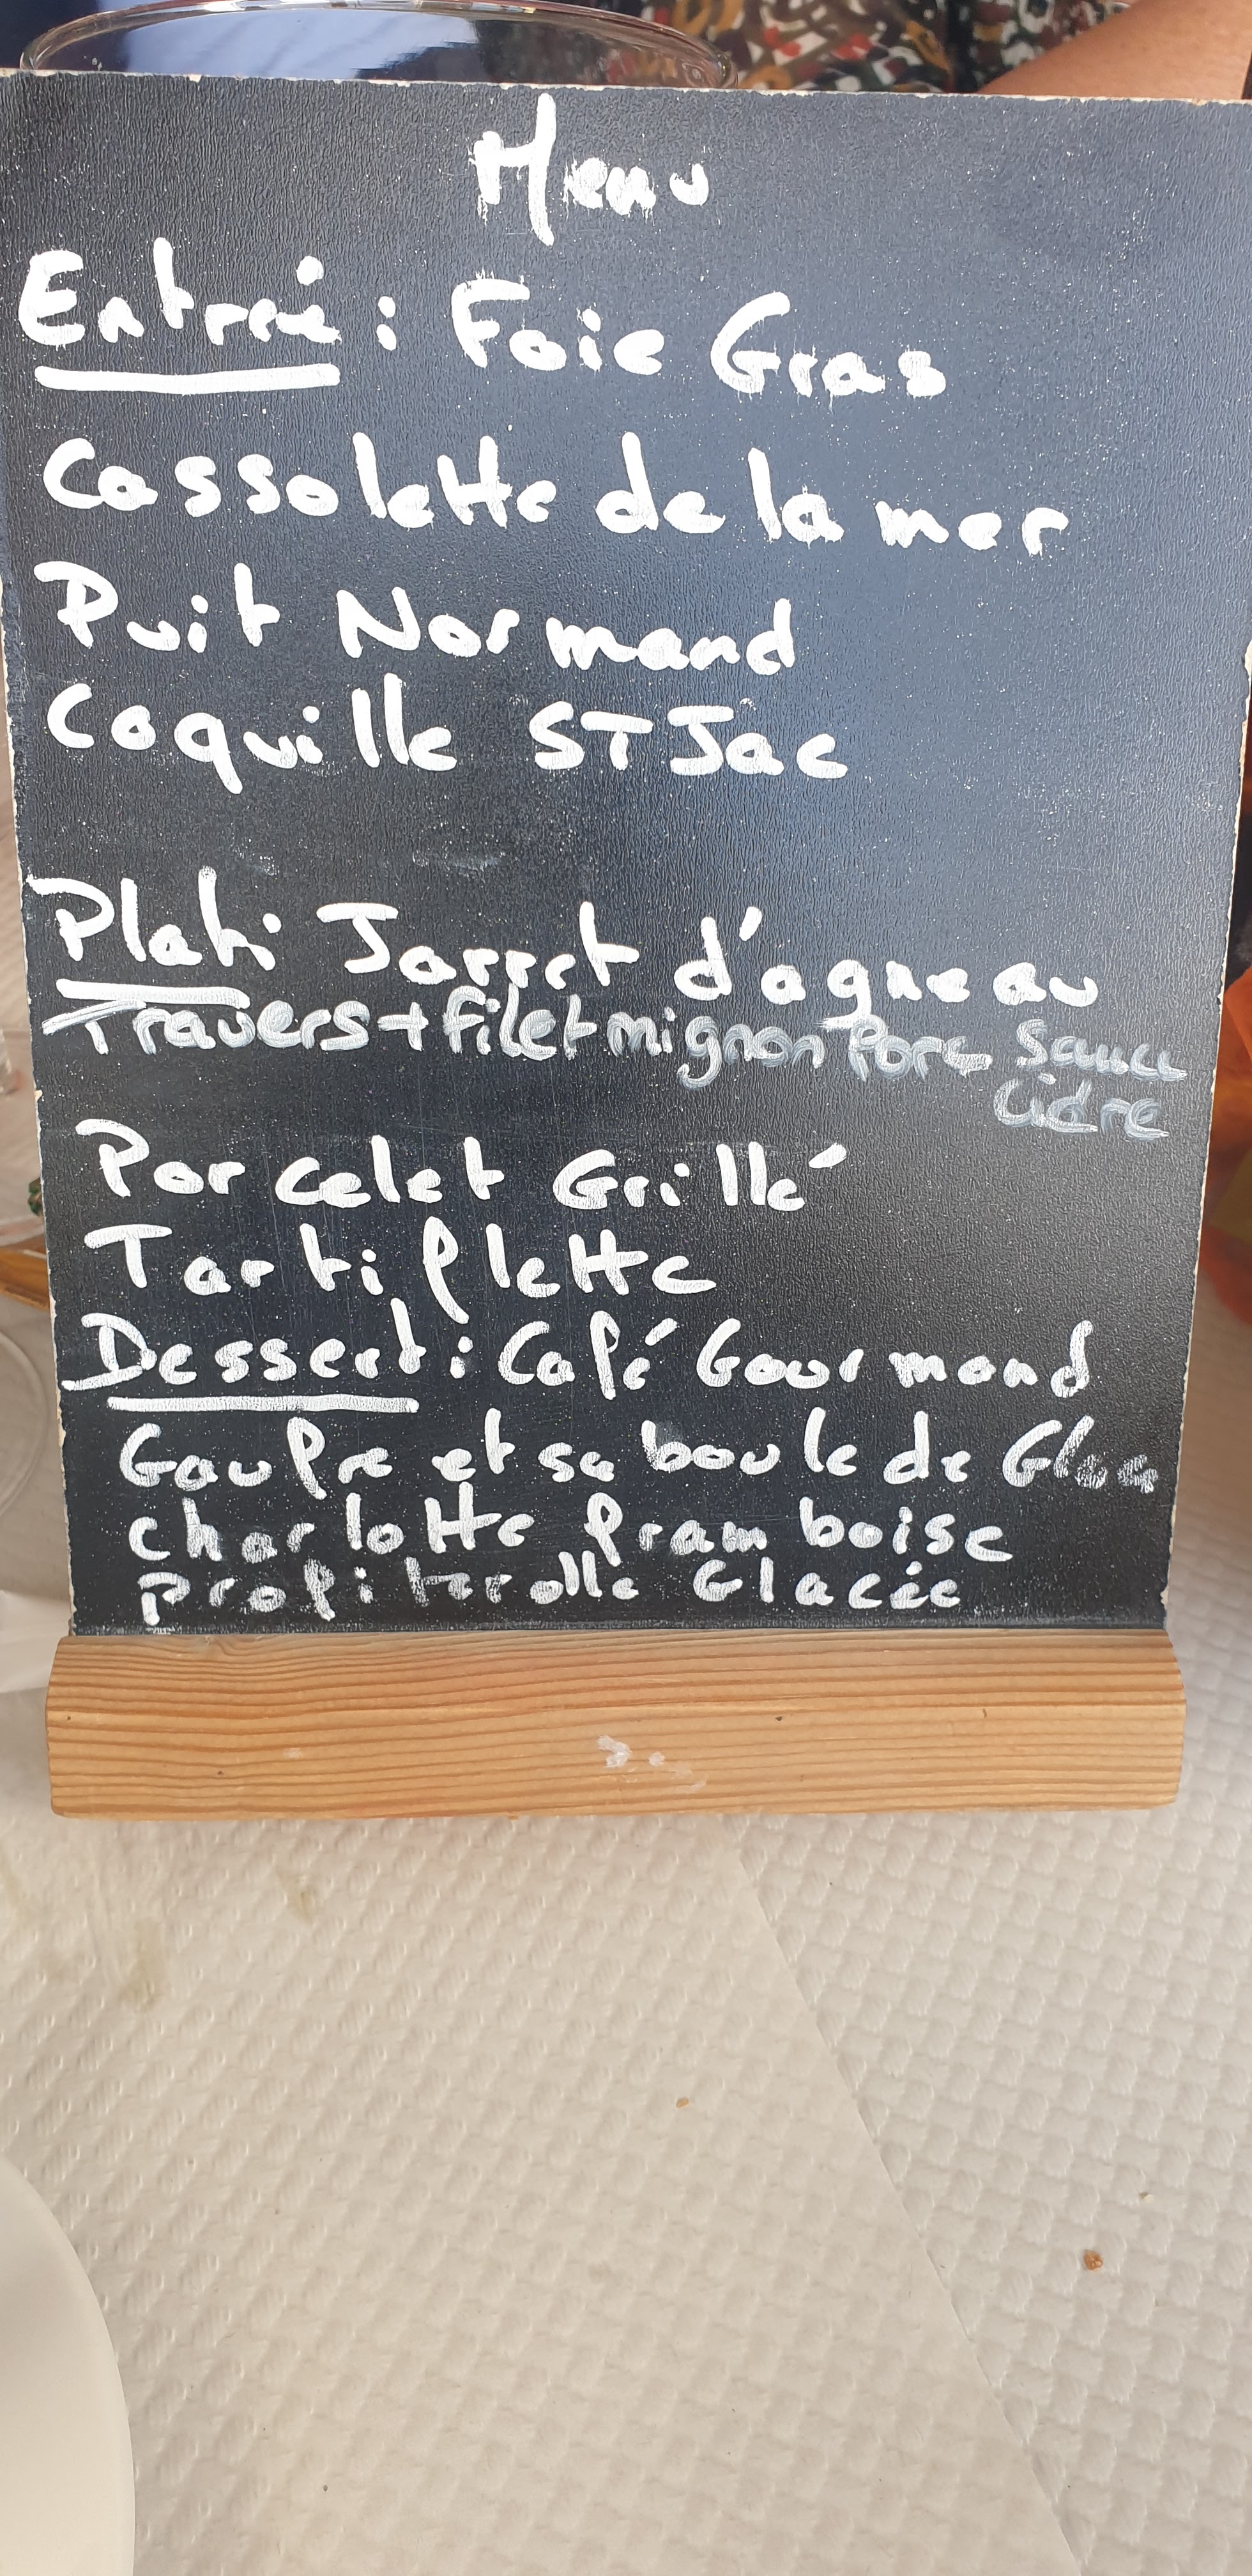 Menu
Entreé : Foie Gras
Cassolette de la mer
Puit Normand
Coquille ST Jac
Plat: Jarret d'agneau
Travers + filet mignon Porc Sauce
Cidre
Porcelet Grillé
Tartiflette
Dessert : Café Gourmand
Gaufre et sa boule de Glace
charlotte framboise
profiterolle Glacée